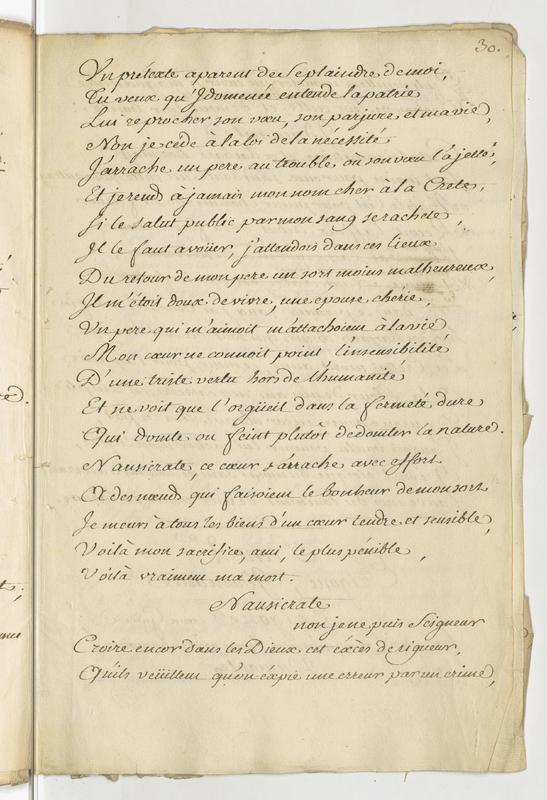 30.
Un prétexte aparent de Se plaindre de moi,
Tu veux qu'Idomenée entende la patrie
Lui reprocher son vœu, son parjure et ma vie,
Non je cède à la loi de la nécessité
J'arrache un pere au trouble où son vœu l'a jetté,
Et je rends à jamais mon nom cher à la Crete,
Si le salut public par mon sang se rachete,
Il le faut avoüer, j'attendois dans ces lieux
Du retour de mon pere un sort moins malheureux,
Il m'étoit doux de vivre, une épouse chérie,
Un pere qui m'aimoit m'attachoient à la vie,
Mon cœur ne connoit point l'insensibilité
D'une triste vertu hors de l'humanité
Et ne voit que l'orgüeil dans la fermeté dure
Qui domte ou feint plutôt de domter la nature.
Nausicrate, ce cœur s'arrache avec effort
A des nœuds qui faisoient le bonheur de mon sort
Je meurs à tous les biens d'un cœur tendre et sensible,
Voilà mon sacrifice, ami, le plus pénible,
Voilà vraiment ma mort.
Nausicrate
non je ne puis Seigneur
Croire encor dans les Dieux cet excès de rigueur,
Qu'ils veüillent qu'on éxpie une erreur par un crime,